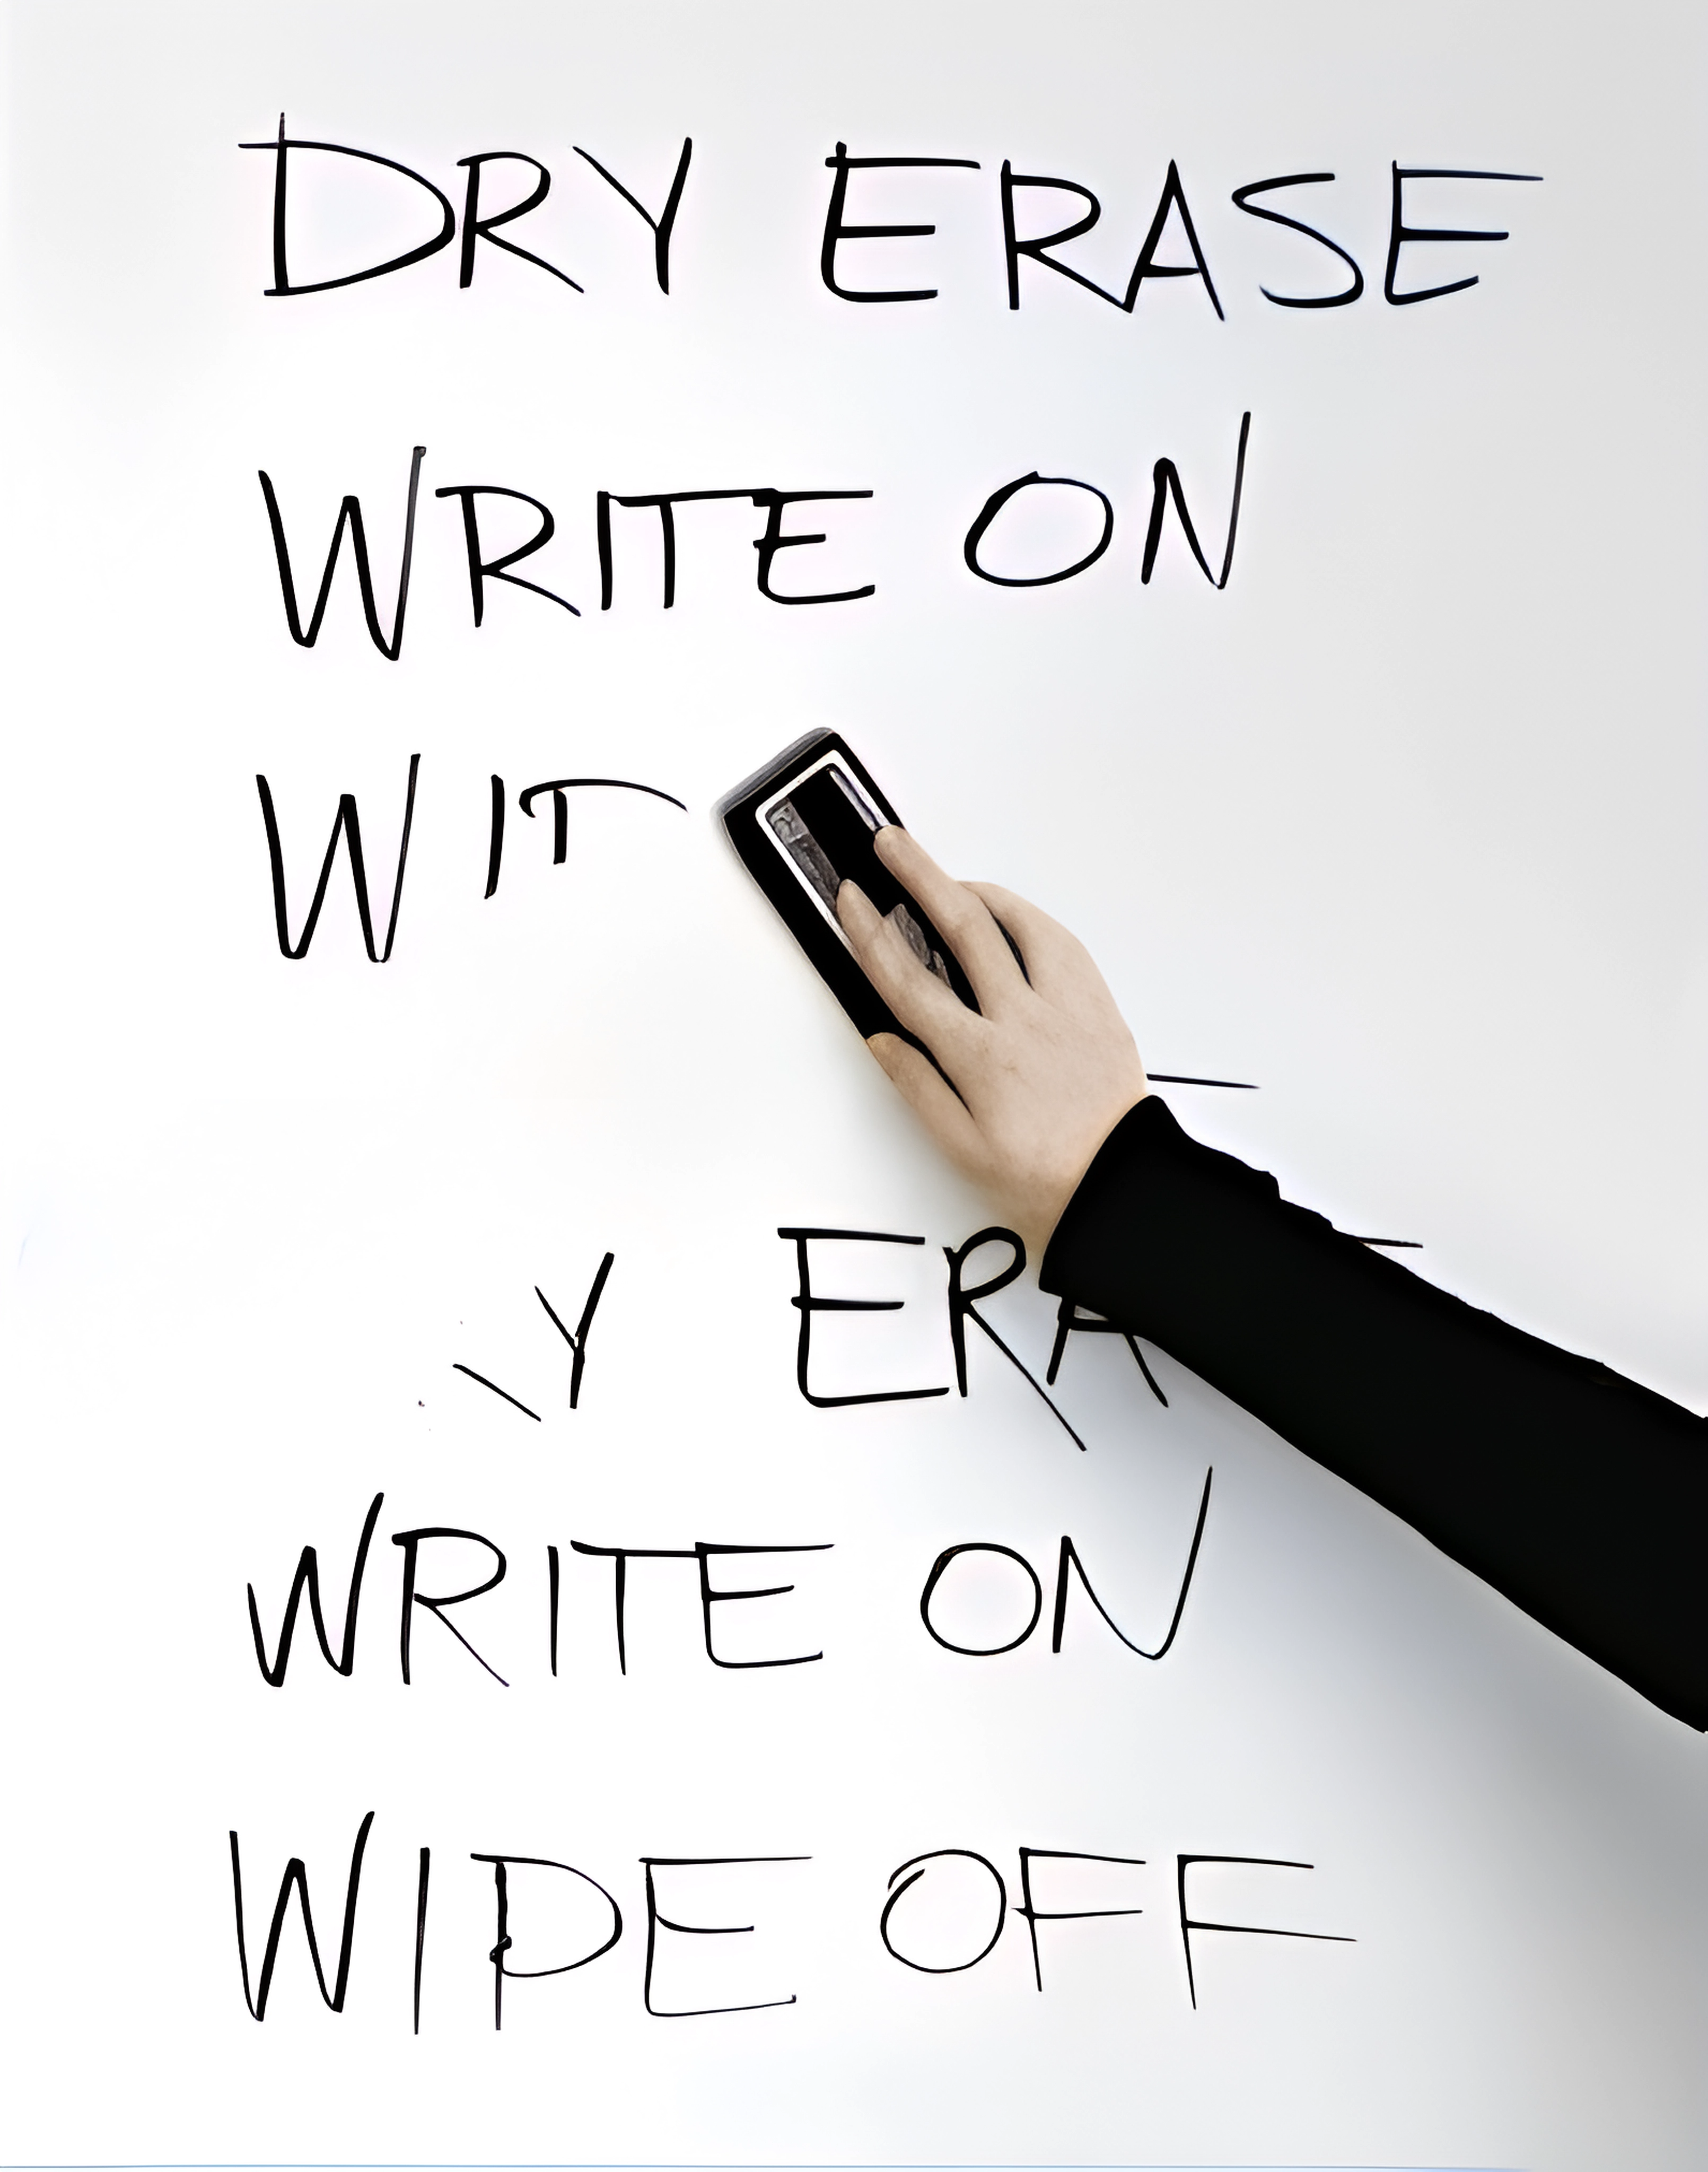 DRY ERASE
WRITE ON
W I
Y ERA
WRITE ON
WIPE OFF